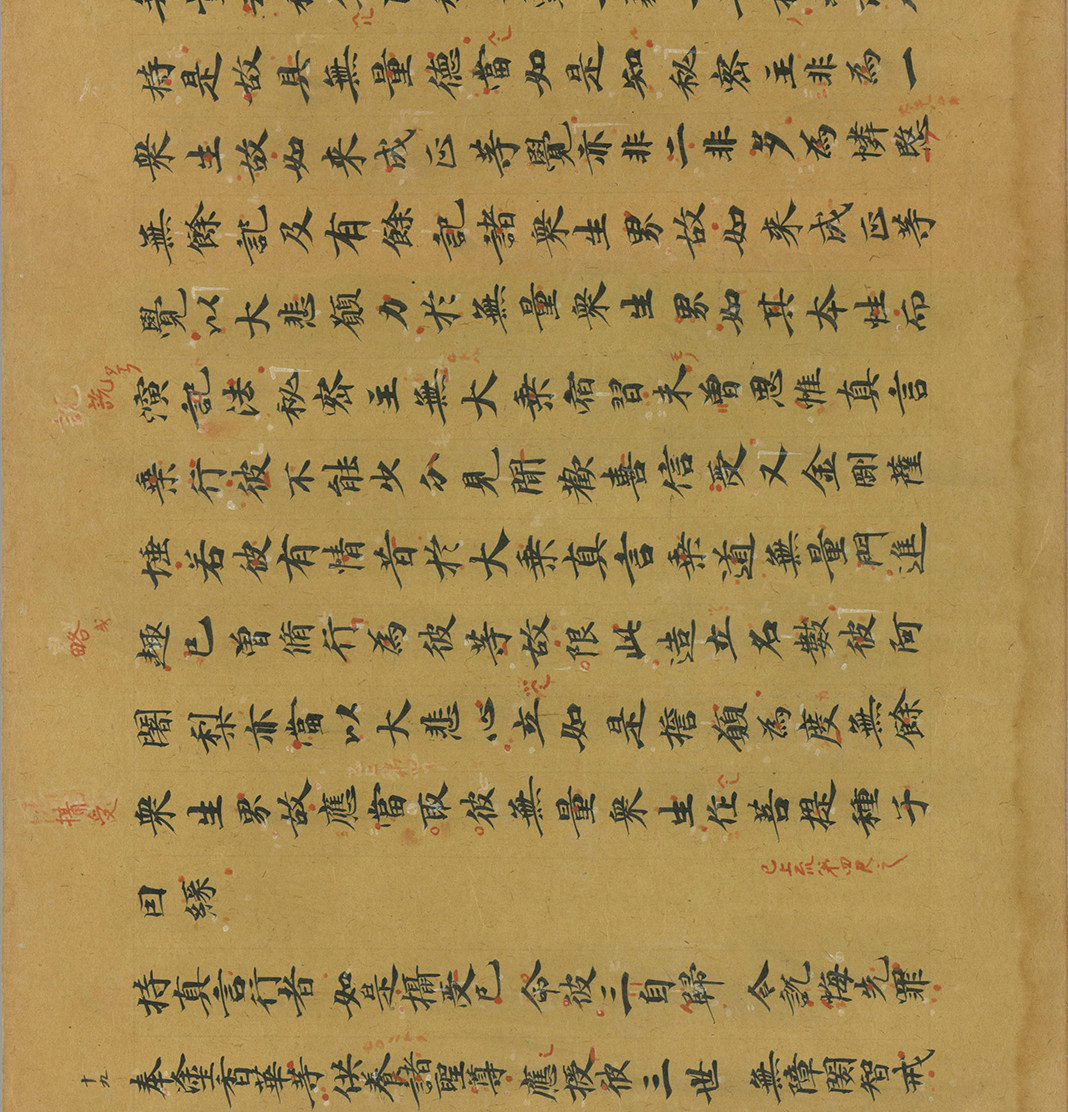 持是故具無量德當如是知秘密主非為一
衆生故如来成正等覺亦非二非多為憐愍
無餘記及有餘記諸衆生界故如来成正等
覺以大悲願力於無量衆生界如其本性而
說
演記法秘密主無大乗宿習未曽思惟真言
乗行彼不能少分見聞歡喜信受又金剛薩
埵若彼有情昔於大乗真言乗道無量門進
略
趣已曽脩行為彼等故限此造立名數彼阿
闍梨亦當以大悲心立如是擔願為度無餘
攝受
衆生界故應當取彼無量衆生住菩提種子
因緣
持真言行者如是攝受已命彼三自歸 令說悔先罪
奉塗香華等供養諸聖尊應授彼三世 無障閡智戒
十九